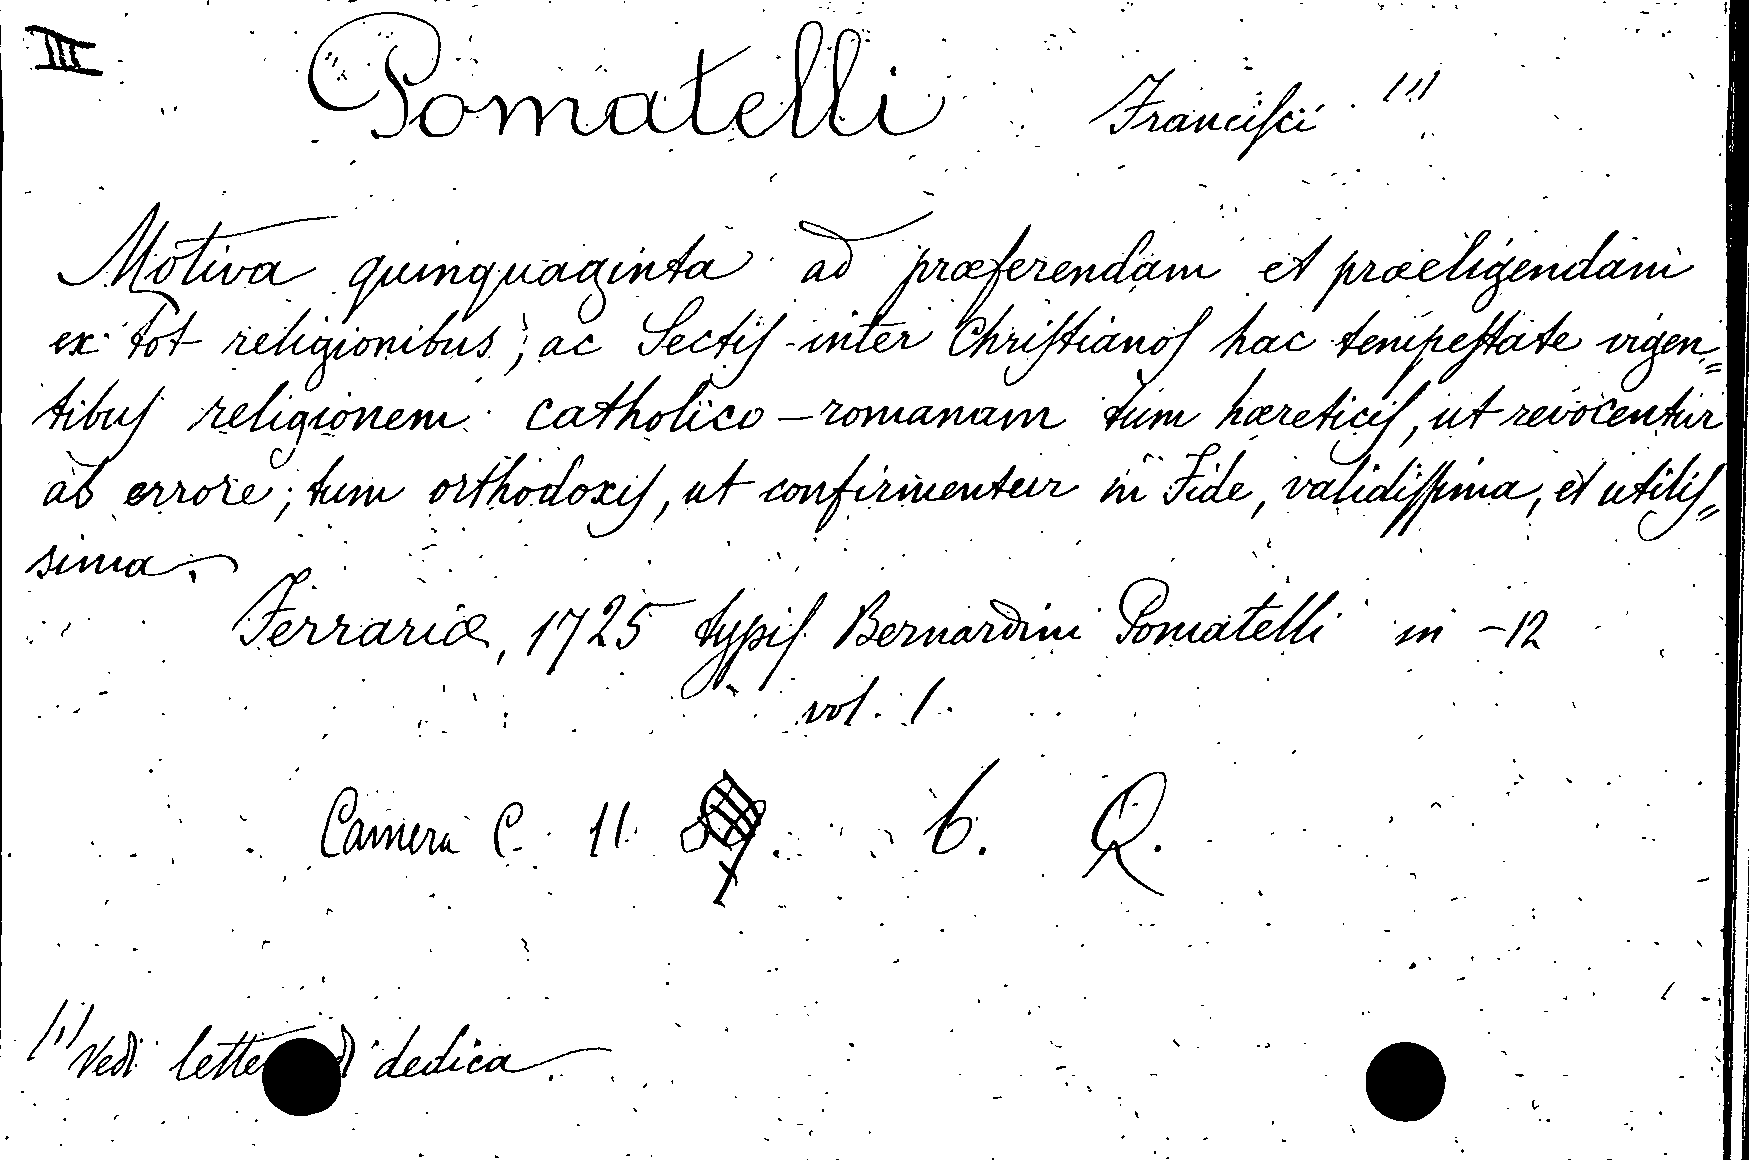 III
Pomatelli Francisci (1)
Motiva quinquaginta ad præferendam et præeligendam
ex tot religionibus, ac Sectis inter Christianos hac tempestate vigen=
tibus religionem catholico-romanam tum hæreticis, ut revocentur
ab errore; tum orthodoxis, ut confirmentur in Fide, validissima, et utilis=
sima.
Ferrariæ, 1725 typis Bernardini Pomatelli in -12
vol. 1.
Camera C. 11. 6. Q.
(1) Vedi dedica